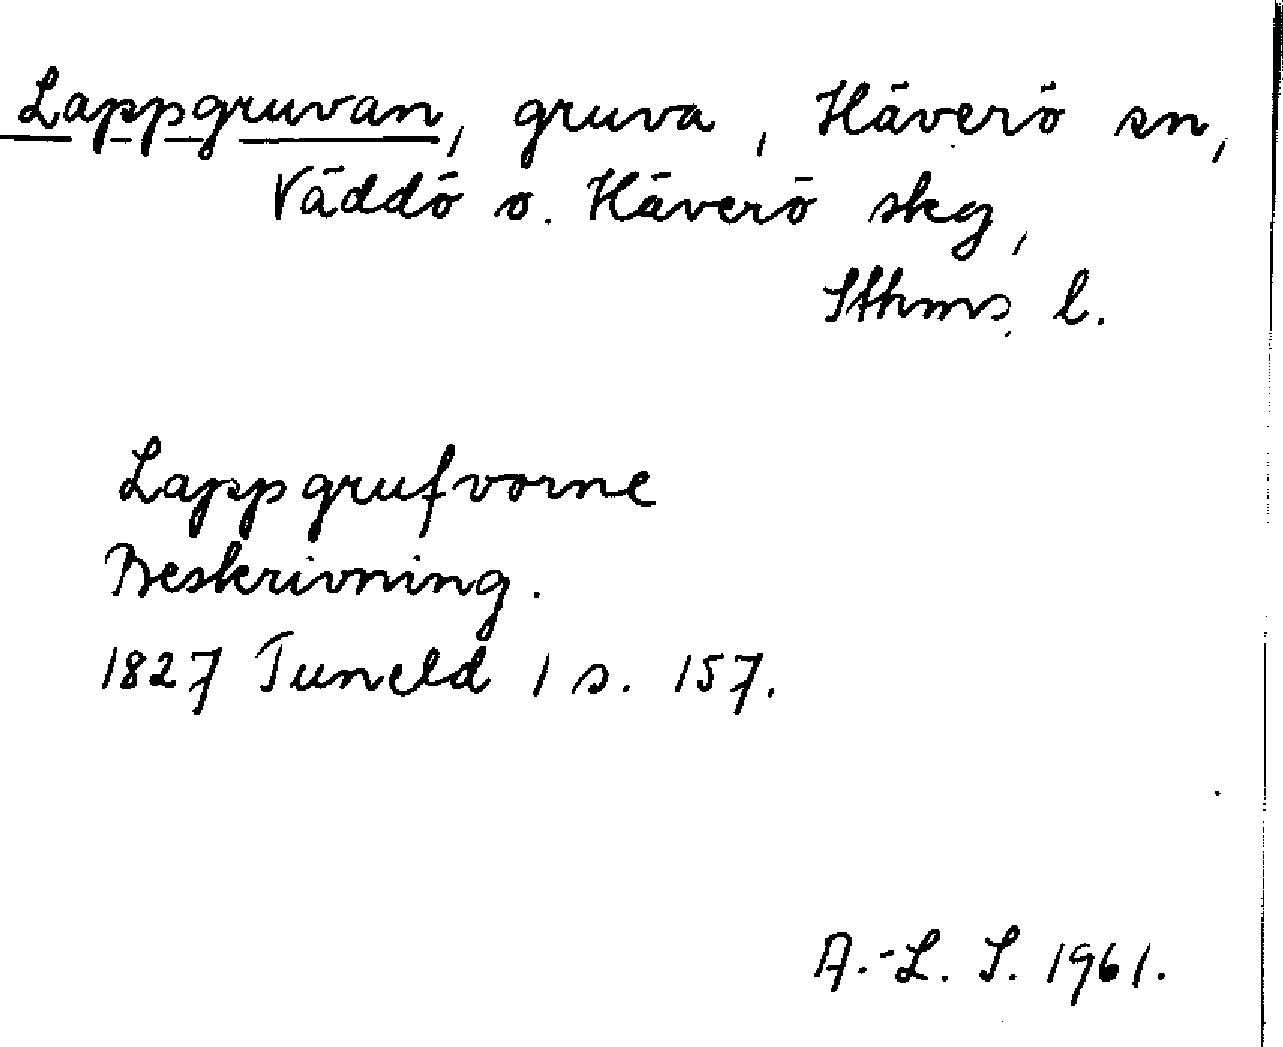 Lappgruvan, gruva, Häverö sn,
Väddö o. Häverö skg,
Sthms l.
Lappgrufvorne
Beskrivning.
1827 Tuneld 1 s. 157.
A.-L. S. 1961.